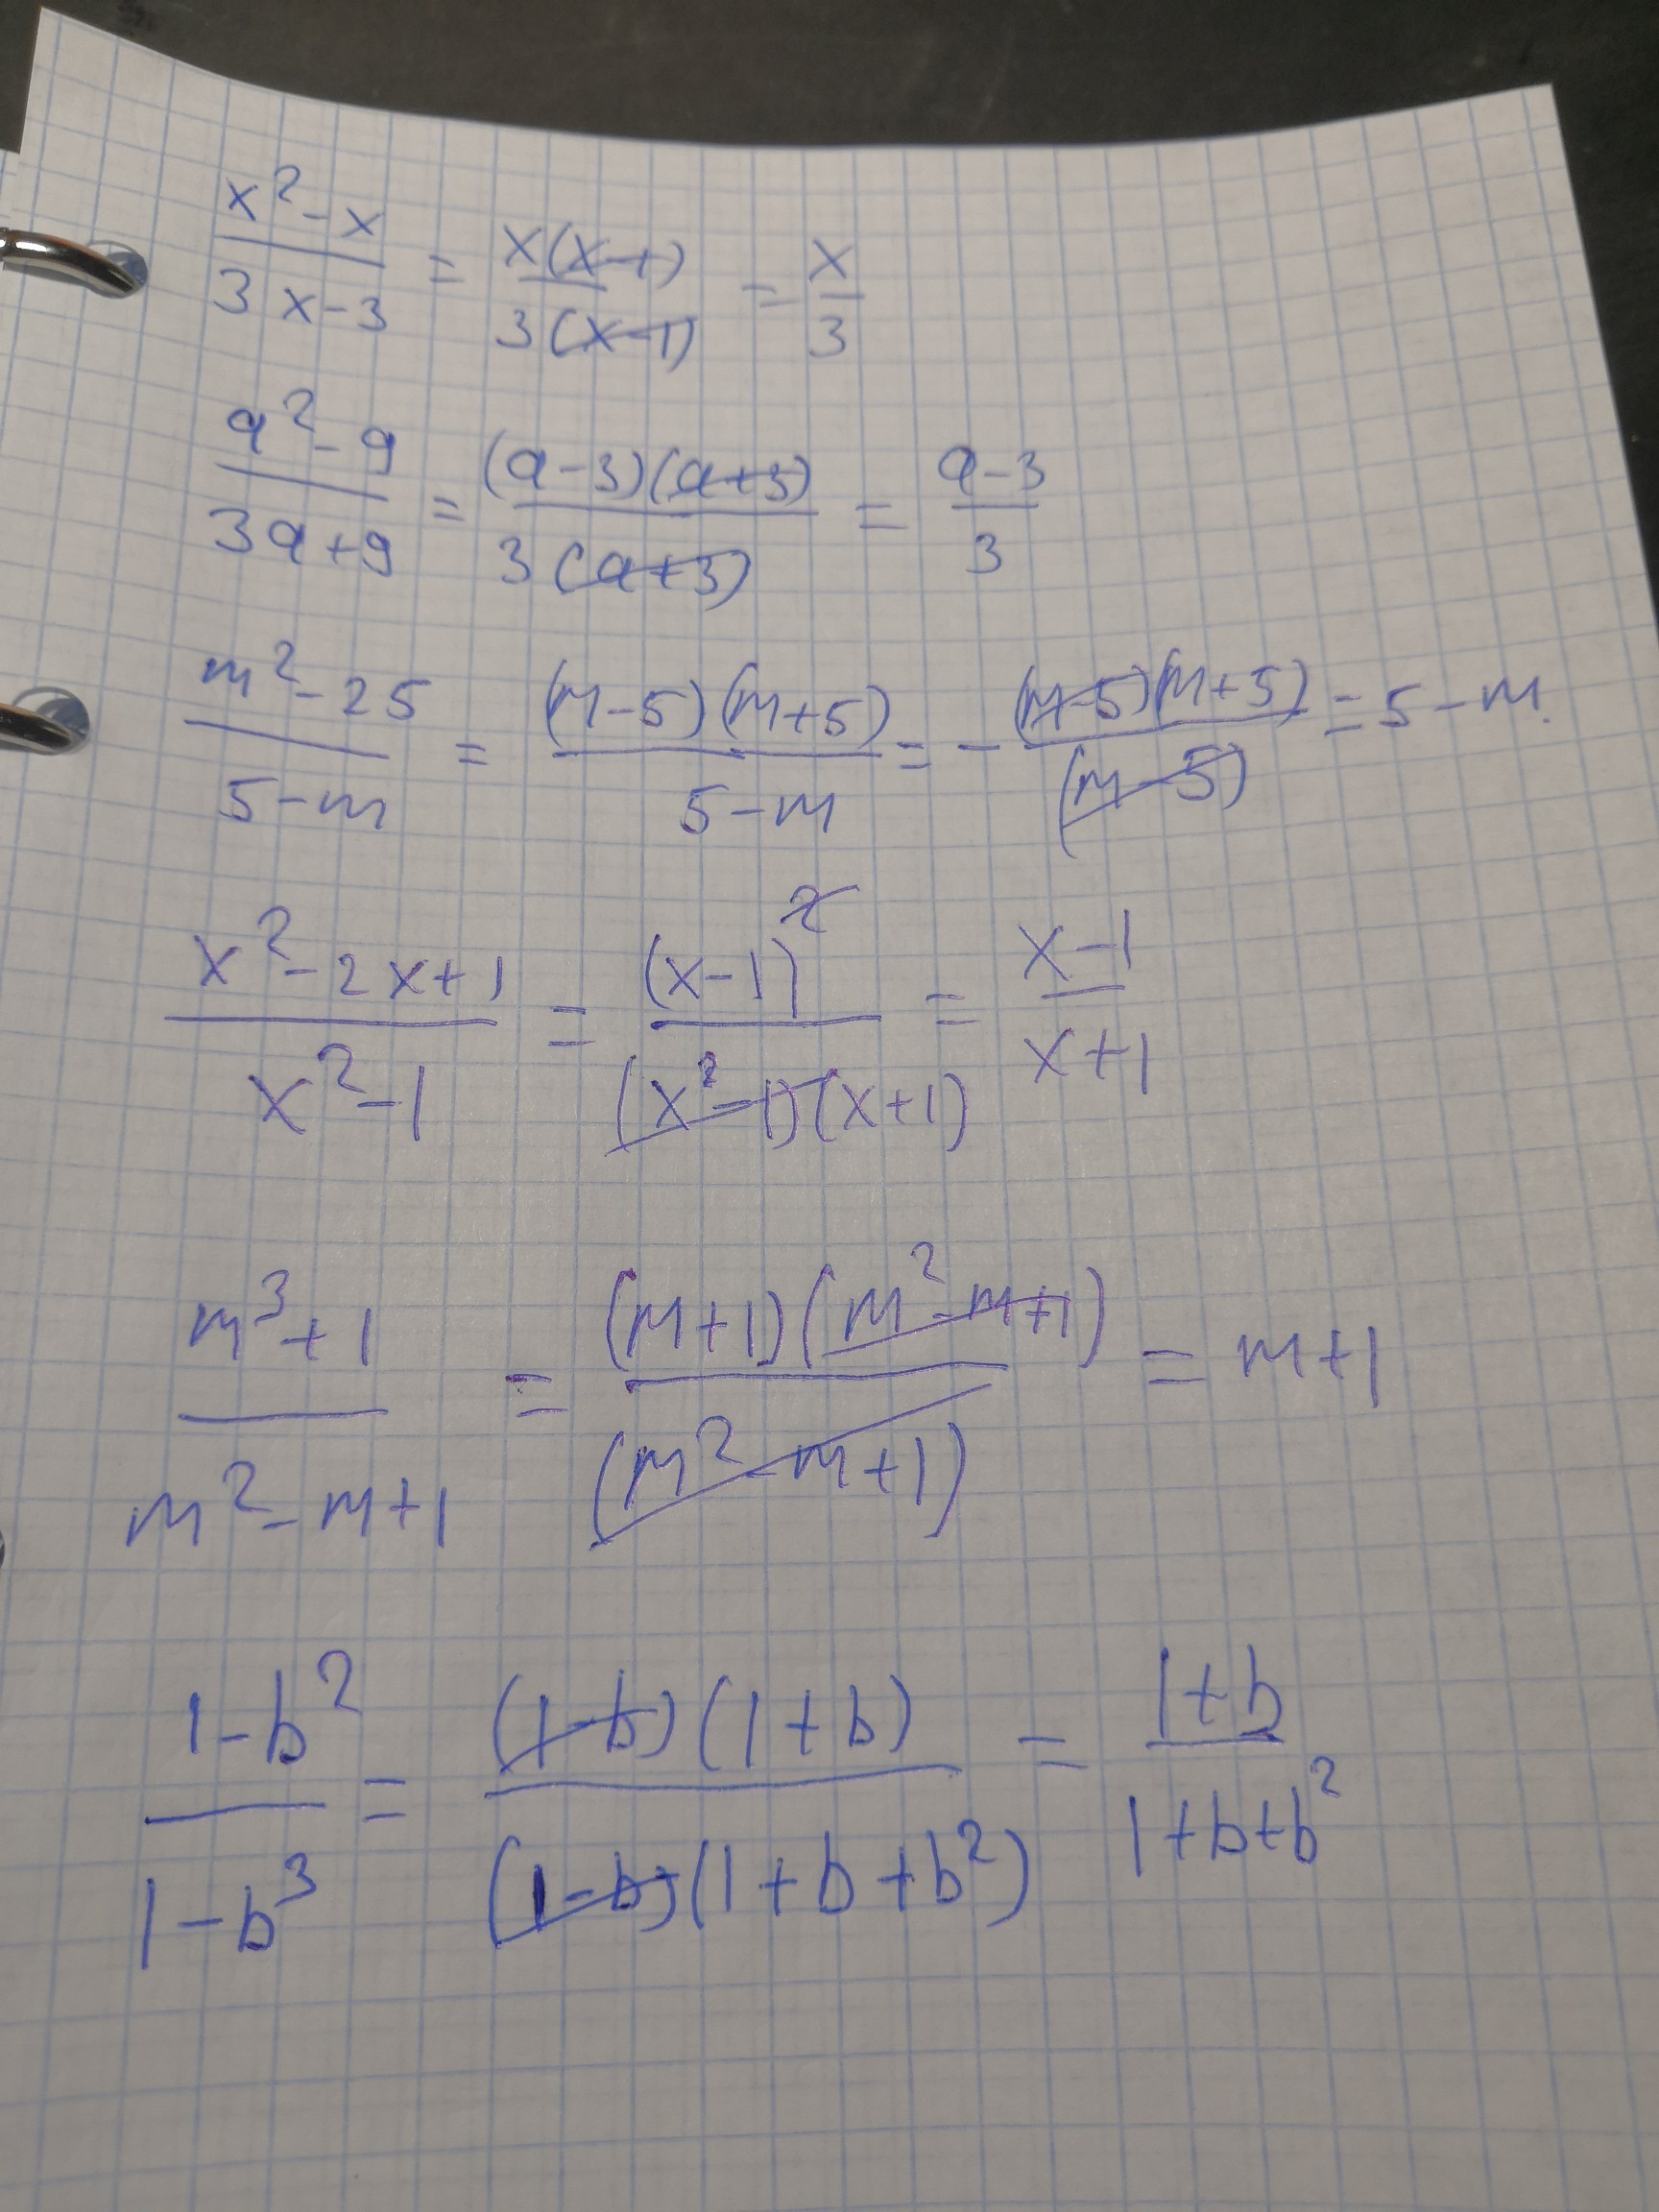 x² - x / 3x - 3 = x(x - 1) / 3(x - 1) = x / 3
a² - 9 / 3a + 9 = (a - 3)(a + 3) / 3(a + 3) = a - 3 / 3
m² - 25 / 5 - m = (m - 5)(m + 5) / 5 - m = - (m - 5)(m + 5) / (m - 5) = 5 - m.
x² - 2x + 1 / x² - 1 = (x - 1)² / (x² - 1)(x + 1) = x - 1 / x + 1
m³ + 1 / m² - m + 1 = (m + 1)(m² - m + 1) / (m² - m + 1) = m + 1
1 - b² / 1 - b³ = (1 - b)(1 + b) / (1 - b)(1 + b + b²) = 1 + b / 1 + b + b²